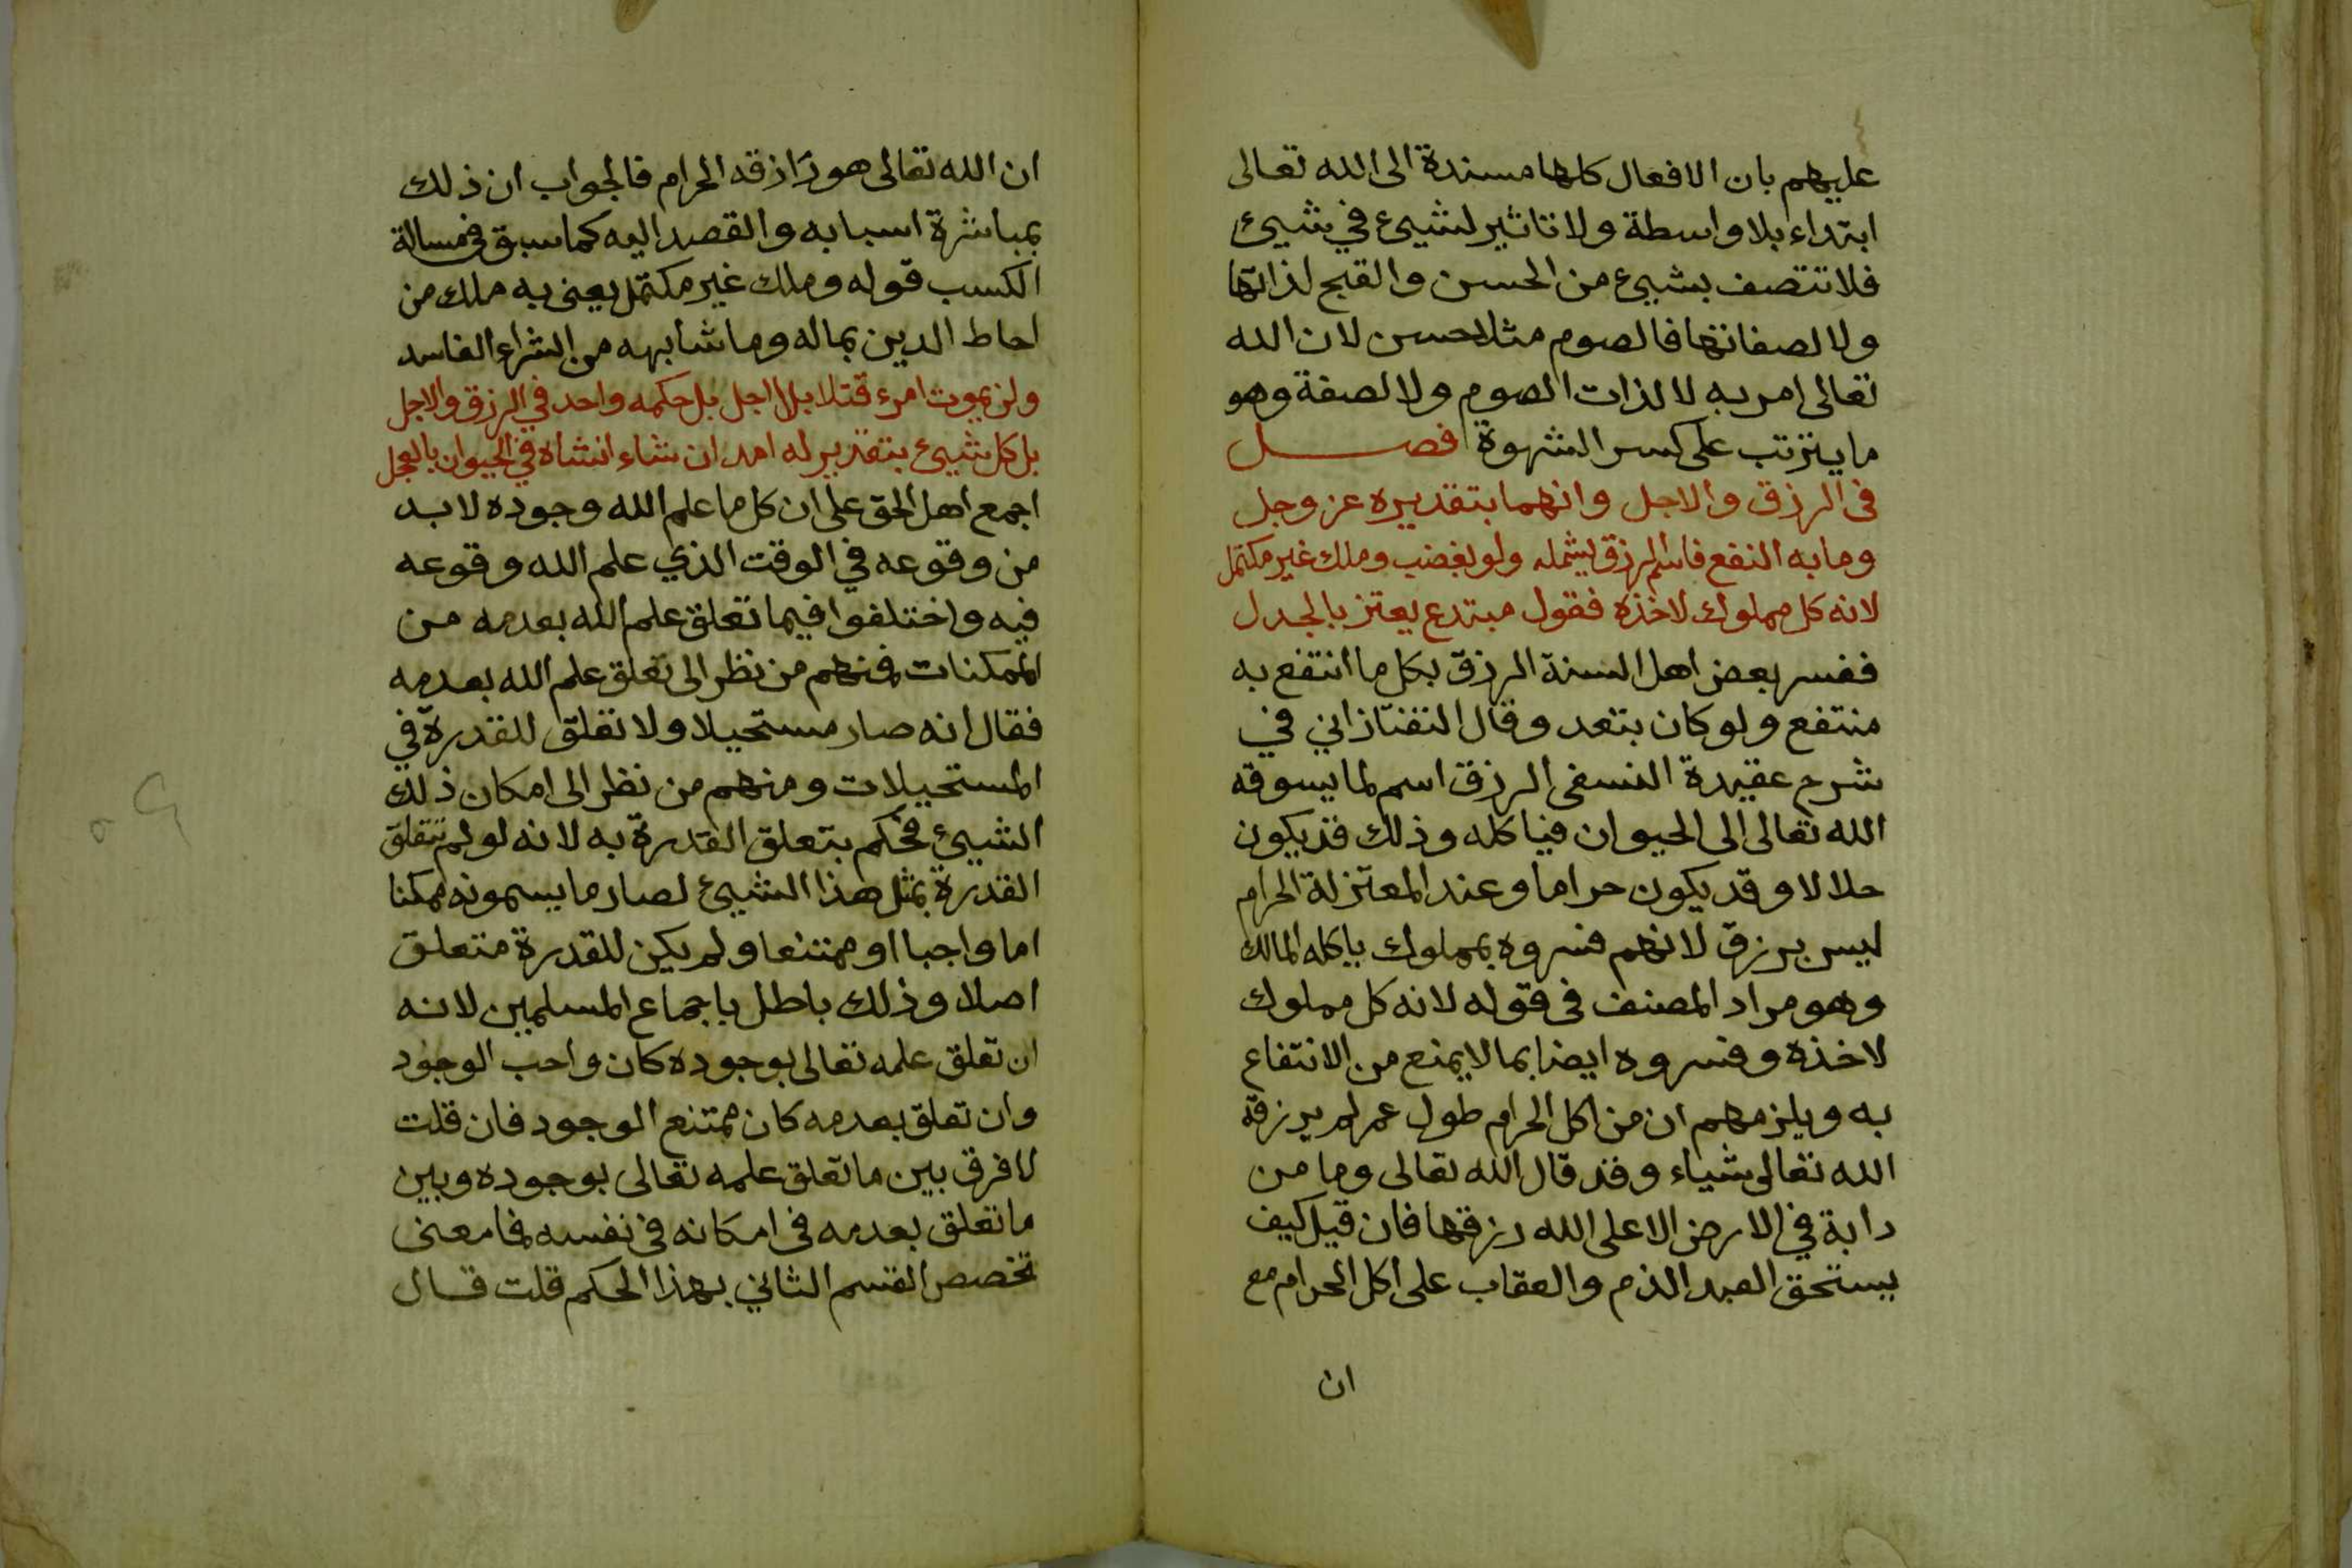 عليهم بان الافعال كلها مسندة الى الله تعالى
ابتداء بلا واسطة ولا تاثير لشيئ في شيئ
فلا تتصف بشيئ من الحسن والقبح لذاتها
ولا لصفاتها فالصوم مثلا حسن لان الله
تعالى امر به لا لذات الصوم ولا لصفة وهو
ما يترتب على كسر الشهوة فصل
فى الرزق والاجل وانهما بتقديره عز وجل
وما به النفع فاسم الرزق يشمله ولو بغضب وملك غير مكتمل
لانه كل مملوك لاخذه فقول مبتدع يعتز بالجدل
ففسر بعض اهل السنة الرزق بكل ما انتفع به
منتفع ولو كان بتعد وقال التفتازاني في
شرح عقيدة النسفى الرزق اسم لما يسوقه
الله تعالى الى الحيوان فياكله وذلك قد يكون
حلالا وقد يكون حراما وعند المعتزلة الحرام
ليس برزق لانهم فسروه بمملوك ياكله المالك
وهو مراد المصنف فى قوله لانه كل مملوك
لاخذه وفسروه ايضا بما لا يمنع من الانتفاع
به ويلزمهم ان من اكل الحرام طول عمر لم يرزقه
الله تعالى شياء وقد قال الله تعالى وما من
دابة في الارض الا على الله رزقها فان قيل كيف
يستحق العبد الذم والعقاب على اكل الحرام مع
ان
ان الله تعالى هو رازقه الحرام فالجواب ان ذلك
بمباشرة اسبابه والقصد اليه كما سبق فى مسالة
الكسب قوله وملك غير مكتمل يعنى به ملك من
احاط الدين بماله وما شابهه من الشراء الفاسد
ولن يموت امرء قتلا بلا اجل بل حكمه واحد في الرزق والاجل
بل كل شيئ بتقدير له امد ان شاء انشاه في الحيوان بالعجل
اجمع اهل الحق على ان كل ما علم الله وجوده لا بد
من وقوعه في الوقت الذي علم الله وقوعه
فيه واختلفوا فيما تعلق علم الله بعدمه من
الممكنات فمنهم من نظر الى تعلق علم الله بعدمه
فقال انه صار مستحيلا ولا تعلق للقدرة في
المستحيلات ومنهم من نظر الى امكان ذلك
الشيئ فحكم بتعلق القدرة به لانه لو لم تتعلق
القدرة بمثل هذا الشيئ لصار ما يسمونه ممكنا
اما واجبا او ممتنعا ولم يكن للقدرة متعلق
اصلا وذلك باطل باجماع المسلمين لانه
ان تعلق علمه تعالى بوجوده كان واجب الوجود
وان تعلق بعدمه كان ممتنع الوجود فان قلت
لا فرق بين ما تعلق علمه تعالى بوجوده وبين
ما تعلق بعدمه فى امكانه فى نفسه فما معنى
تخصص القسم الثاني بهذا الحكم قلت قال